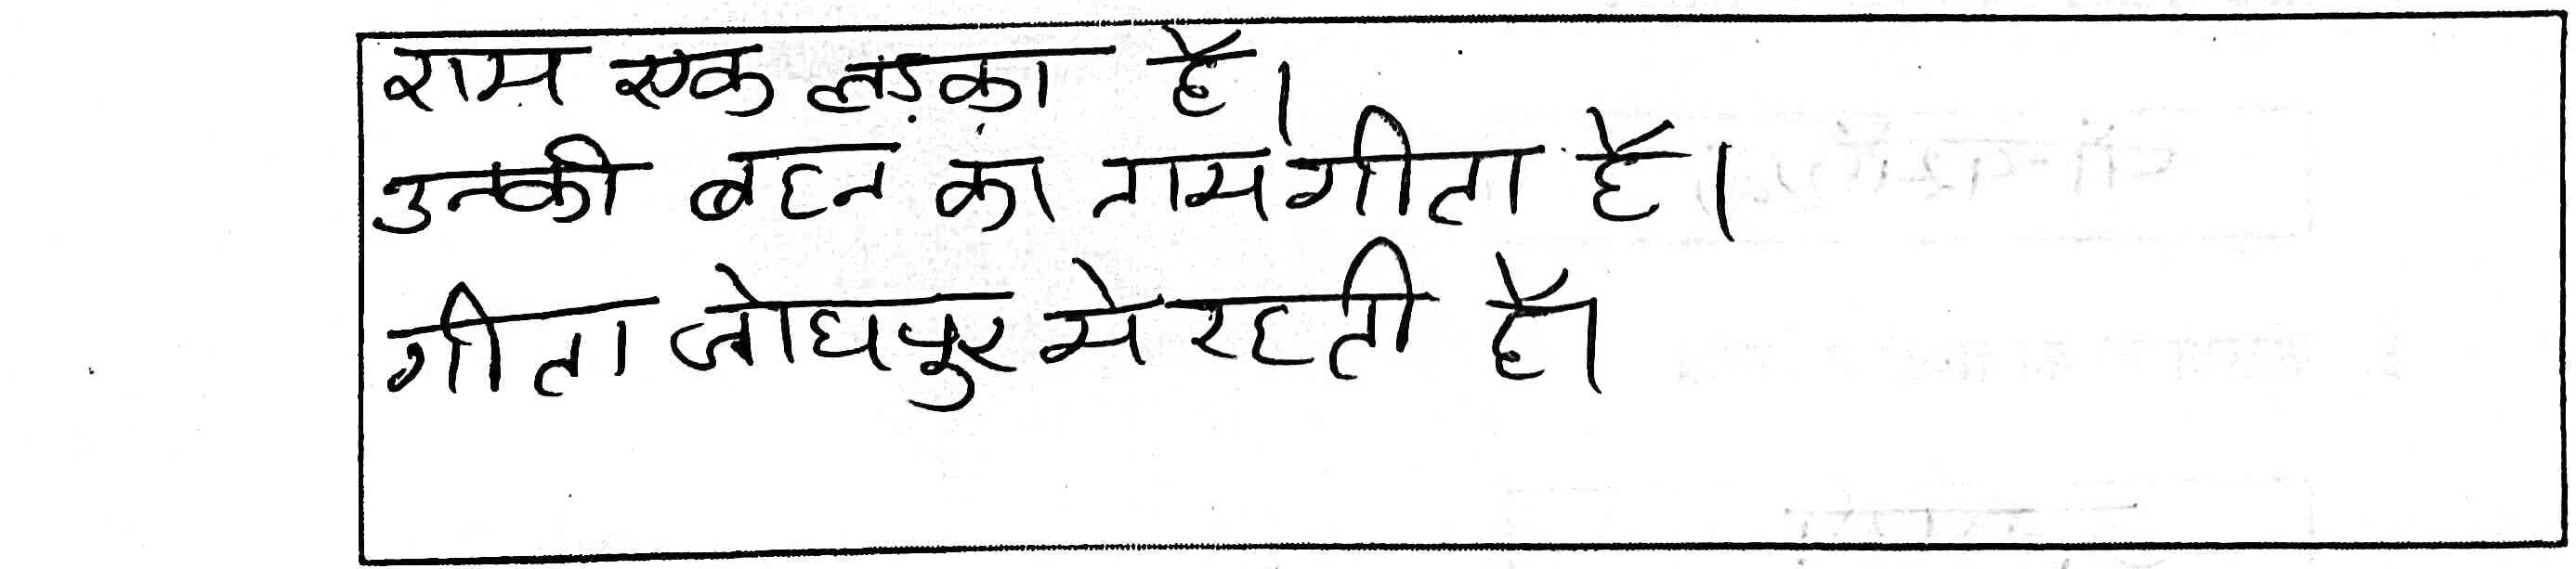 राम एक लड़का है।
उनकी बहन का नाम गीता है।
गीता जोधपुर मे रहती है।